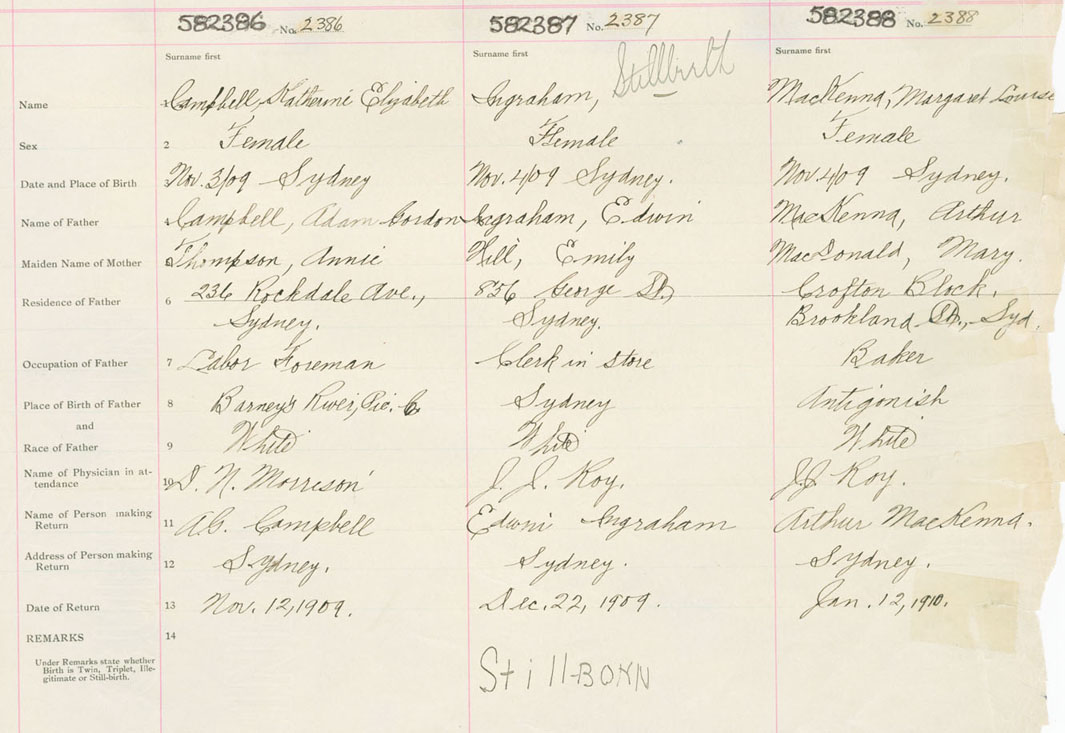 582386 No. 2386 582387 No. 2387 582388 No. 2388
Surname first Surname first Surname first
Stillbirth
Name 1 Campbell, Katherine Elizabeth Ingraham, MacKenna, Margaret Louise
Sex 2 Female Female Female
Date and Place of Birth 3 Nov. 3/09 - Sydney Nov. 4/09 Sydney. Nov 4/09 Sydney.
Name of Father 4 Campbell, Adam Gordon Ingraham, Edwin MacKenna, Arthur
Maiden Name of Mother 5 Thompson, Annie Hill, Emily MacDonald, Mary.
Residence of Father 6 236 Rockdale Ave., 856 George St., Crofton Block,
Sydney. Sydney. Brookland St., Syd.
Occupation of Father 7 Labor Foreman Clerk in store Baker
Place of Birth of Father 8 Barney's River, Pic. Co. Sydney Antigonish
and
Race of Father 9 White White White
Name of Physician in at-
tendance 10 D. N. Morrison J. J. Roy. J.J. Roy.
Name of Person making
Return 11 A.G. Campbell Edwin Ingraham Arthur MacKenna.
Address of Person making
Return 12 Sydney. Sydney. Sydney.
Date of Return 13 Nov. 12, 1909. Dec. 22, 1909. Jan. 12, 1910.
REMARKS 14
Under Remarks state whether
Birth is Twin, Triplet, Ille-
gitimate or Still-birth.
Still-BORN